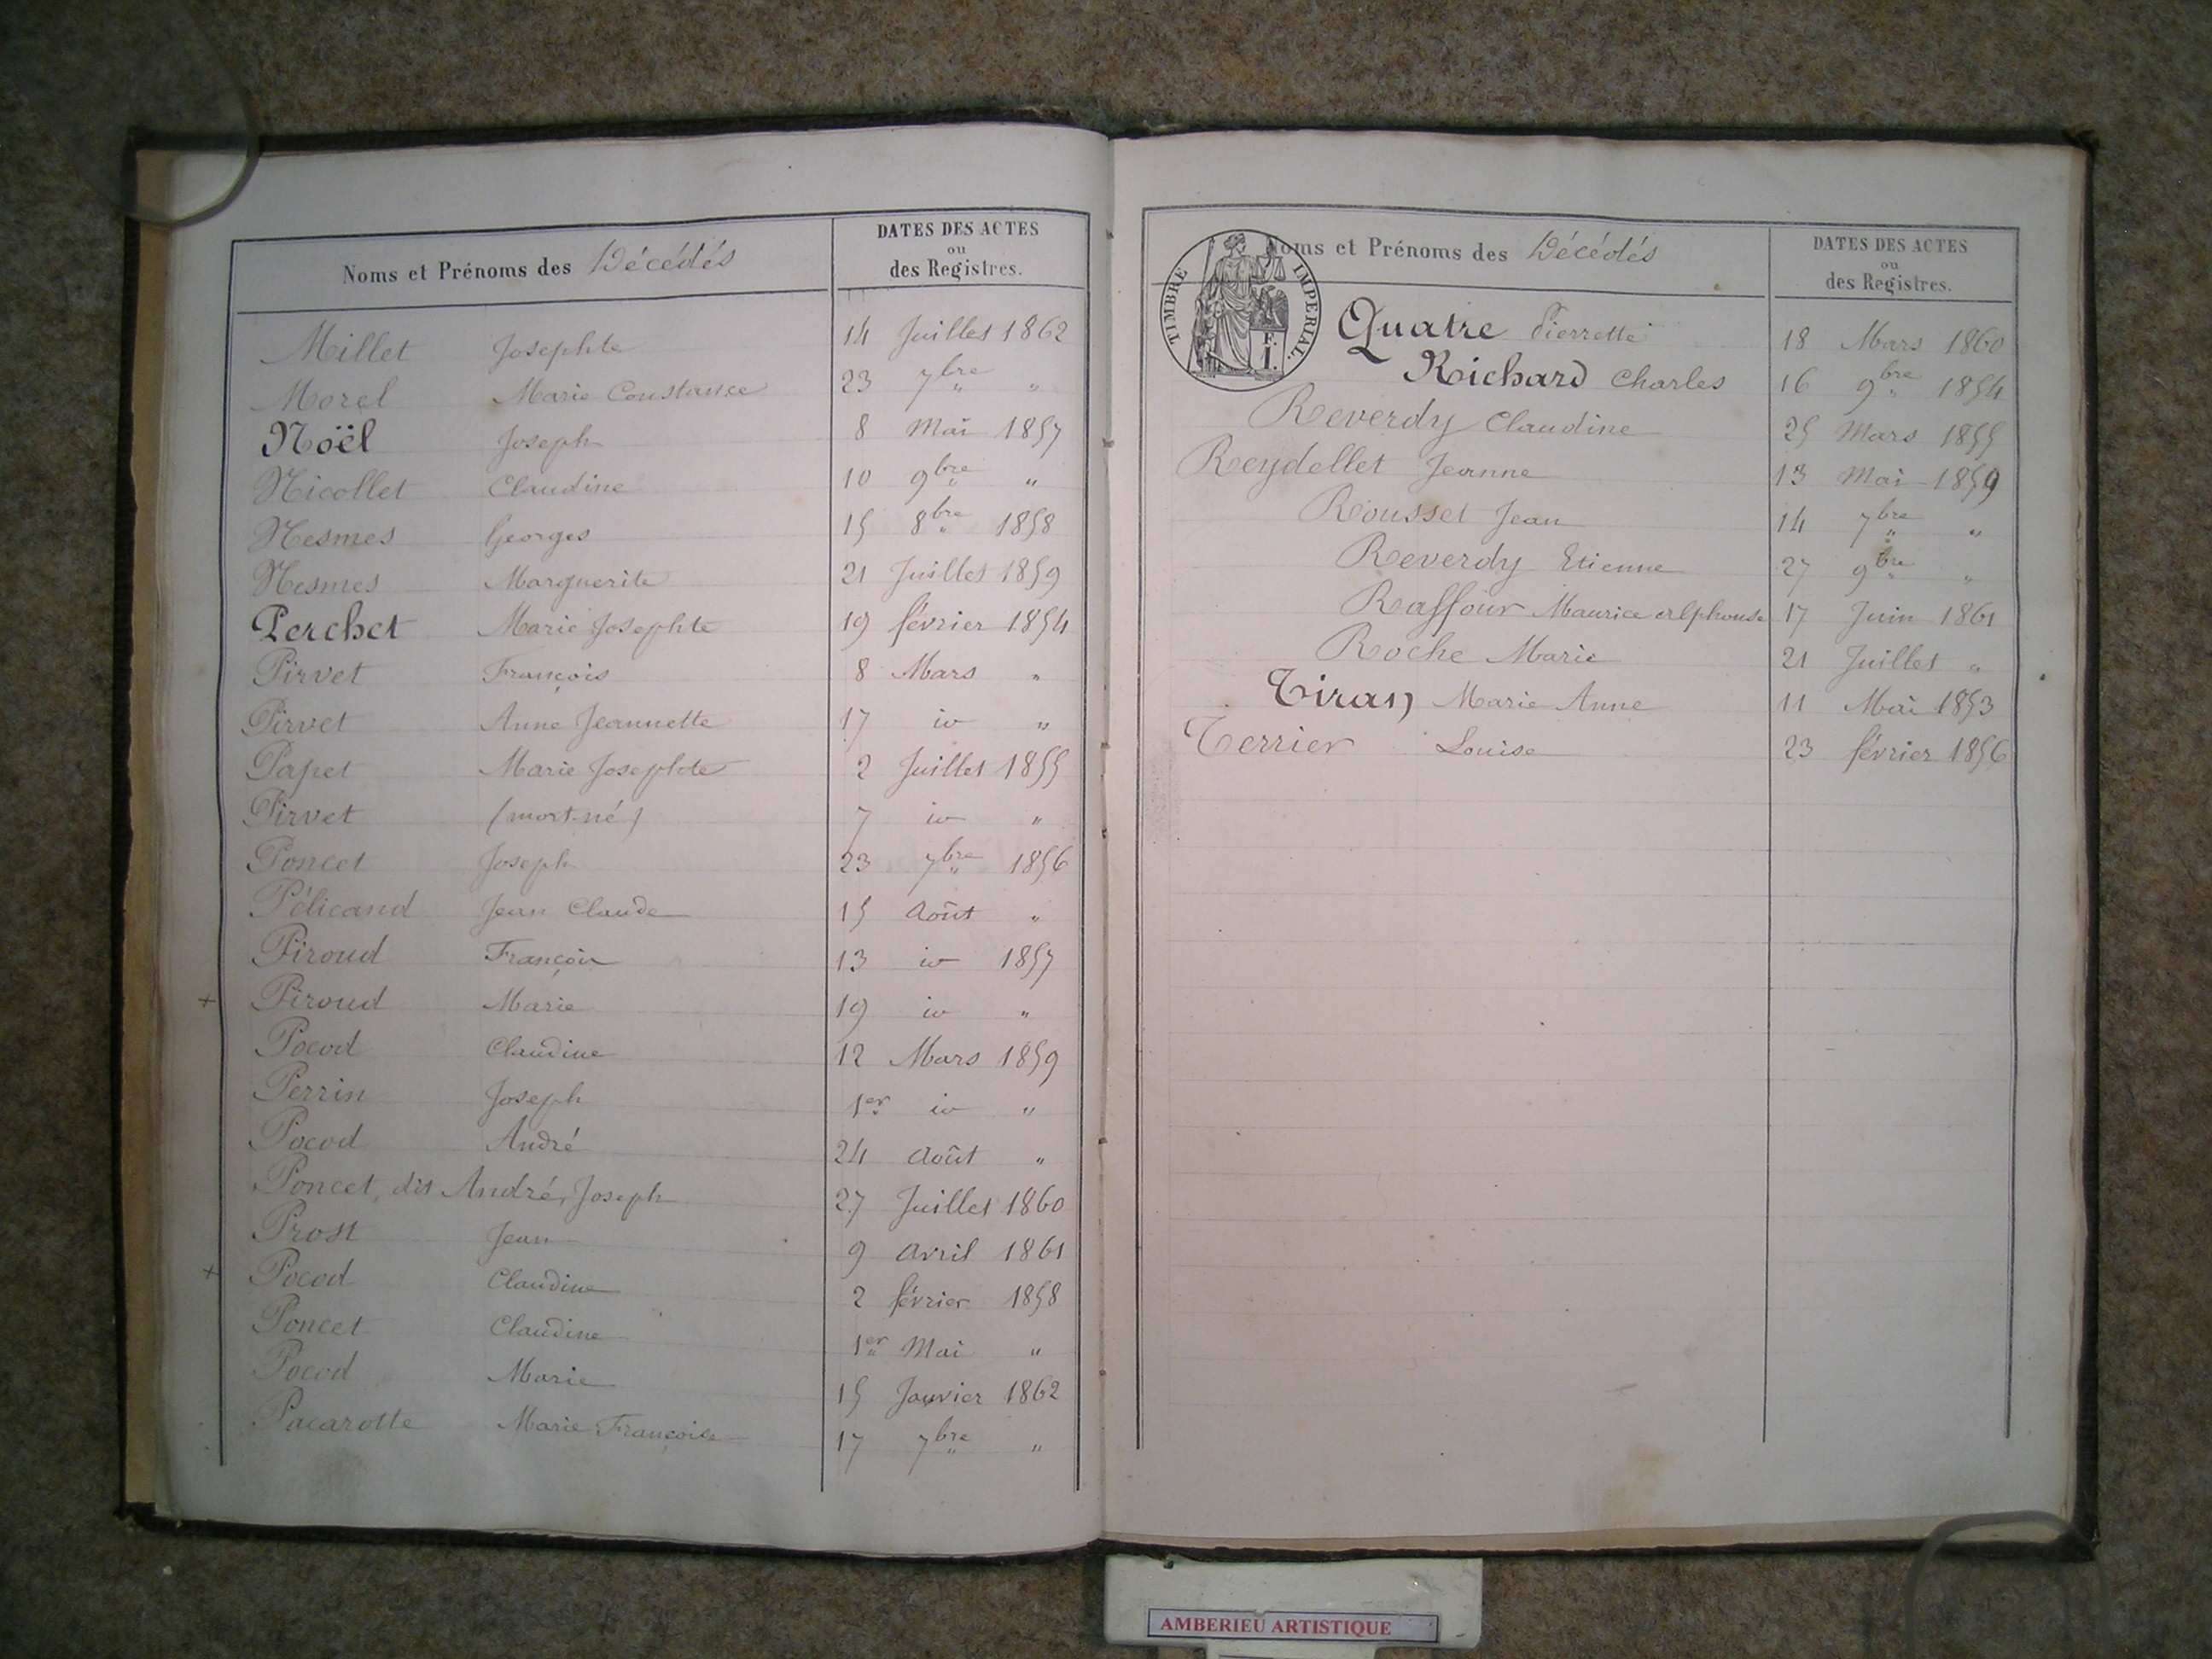 Noms et Prénoms des Décédés
DATES DES ACTES
ou
des Registres.
Millet Josephte 14 Juillet 1862
Morel Marie Constance 23 7bre "
Noël Joseph 8 Mai 1857
Nicollet Claudine 10 9bre "
Nesmes Georges 15 8bre 1858
Nesmes Marguerite 21 Juillet 1859
Perchet Marie Josephte 19 février 1854
Pirvet François 8 Mars "
Pirvet Anne Jeannette 17 id "
Papet Marie Josephte 2 Juillet 1855
Pirvet (mort-né) 7 id "
Poncet Joseph 23 7bre 1856
Pélicand Jean Claude 15 Août "
Piroud François 13 id 1857
+ Piroud Marie 19 id "
Pocod Claudine 12 Mars 1859
Perrin Joseph 1er id "
Pocod André 24 Août "
Poncet, dit André, Joseph 27 Juillet 1860
Prost Jean 9 Avril 1861
+ Pocod Claudine 2 février 1858
Poncet Claudine 1er Mai "
Pocod Marie 15 Janvier 1862
Pacarotte Marie Françoise 17 7bre "
TIMBRE IMPERIAL.
F.
1.
Noms et Prénoms des Décédés
DATES DES ACTES
ou
des Registres.
Quatre Pierrette 18 Mars 1860
Richard Charles 16 9bre 1854
Reverdy Claudine 25 Mars 1855
Reydellet Jeanne 13 Mai 1859
Rousset Jean 14 7bre "
Reverdy Etienne 27 9bre "
Raffour Maurice Alphonse 17 Juin 1861
Roche Marie 21 Juillet "
Tiran Marie Anne 11 Mai 1853
Terrier Louise 23 février 1856
AMBERIEU ARTISTIQUE